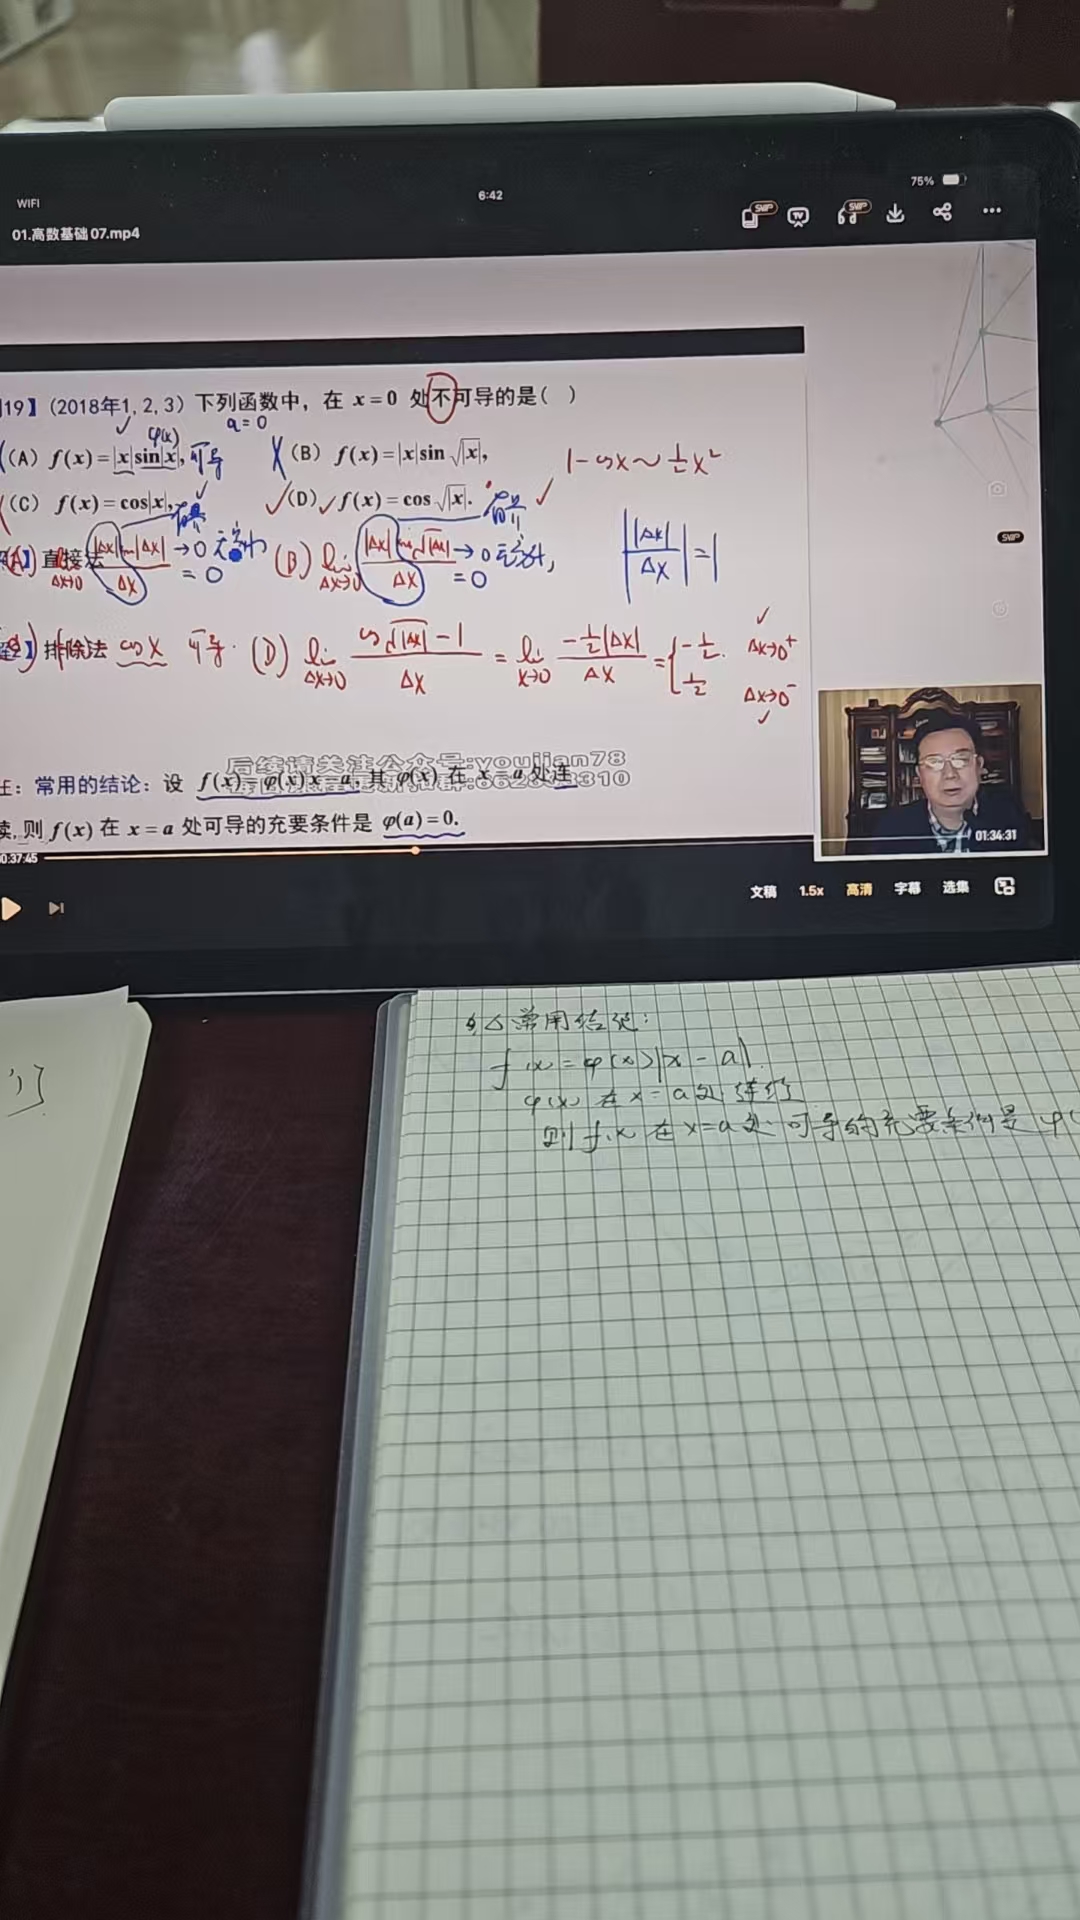 WIFI
6:42
75%
01.高数基础07.mp4
SVIP
TV
SVIP
19】(2018年1,2,3) 下列函数中，在 x=0 处不可导的是( )
a=0
φ(x)
(A) f(x)=|x|sin|x|, 可导
(B) f(x)=|x|sin√|x|,
1-cosx~½x²
(C) f(x)=cos|x|,
(D) f(x)=cos√|x|.
直接法
|Δx|sin|Δx| / Δx →0
=0
(B) lim Δx→0 |Δx|sin√|Δx| / Δx →0
=0
||Δx|/Δx|=1
SVIP
排除法 cosx 可导. (D) lim Δx→0 (cos√|Δx| -1)/Δx = lim x→0 (-½|Δx|)/Δx = {-½. Δx→0⁺
½ Δx→0⁻
后续请关注公众号:youjian78
注：常用的结论：设 f(x)=φ(x)|x-a|, 其 φ(x) 在 x=a 处连
续, 则 f(x) 在 x=a 处可导的充要条件是 φ(a)=0.
0:37:45
01:34:31
文稿 1.5x 高清 字幕 选集
△常用结论:
f(x)=φ(x)|x-a|.
φ(x) 在 x=a处 连续
则 f(x) 在 x=a处 可导的充要条件是 φ(
')]